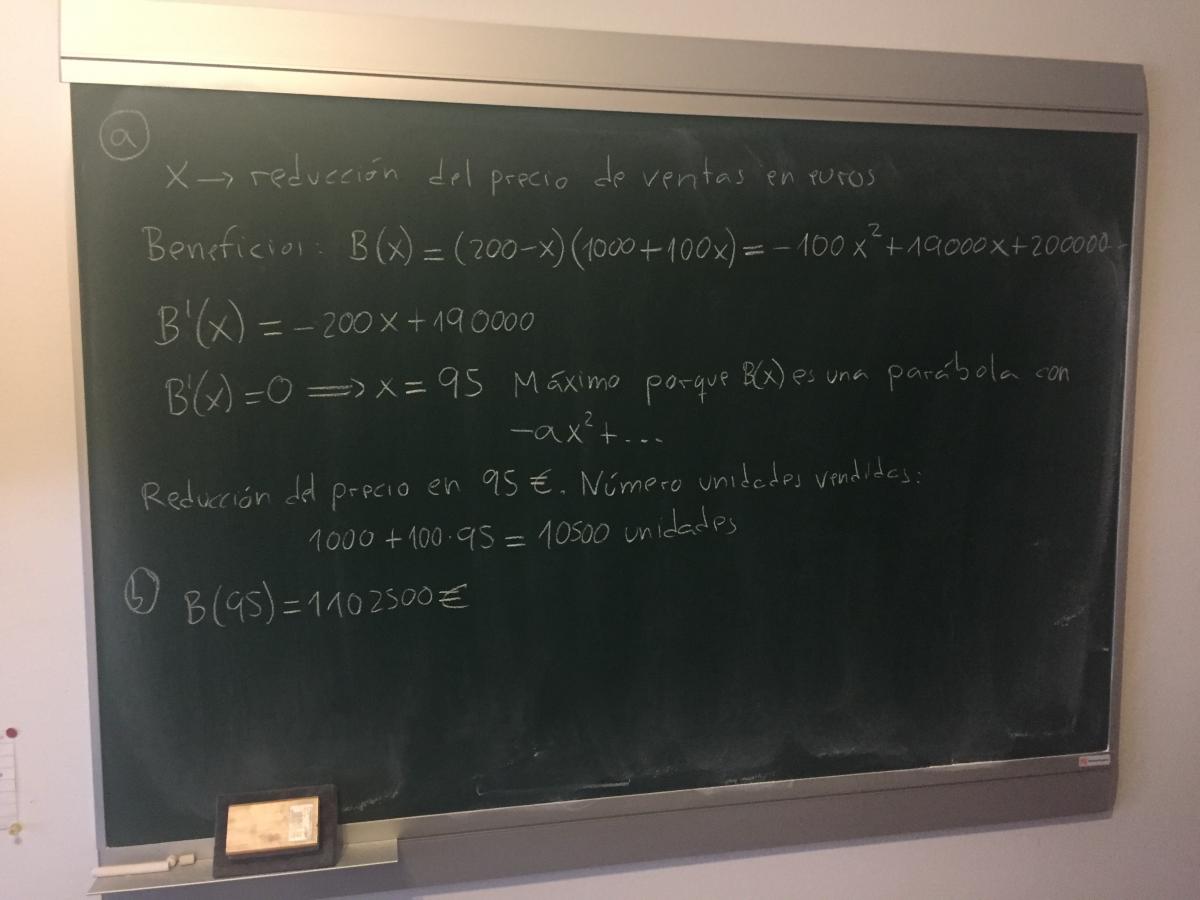 a
X → reducción del precio de ventas en euros
Beneficios: B(x) = (200-x)(1000+100x) = -100x²+19000x+200000
B'(x) = -200x+190000
B'(x)=0 ⟹ x=95 Máximo porque B(x) es una parábola con
-ax²+...
Reducción del precio en 95€. Número unidades vendidas:
1000+100·95 = 10500 unidades
b B(95)=1102500€